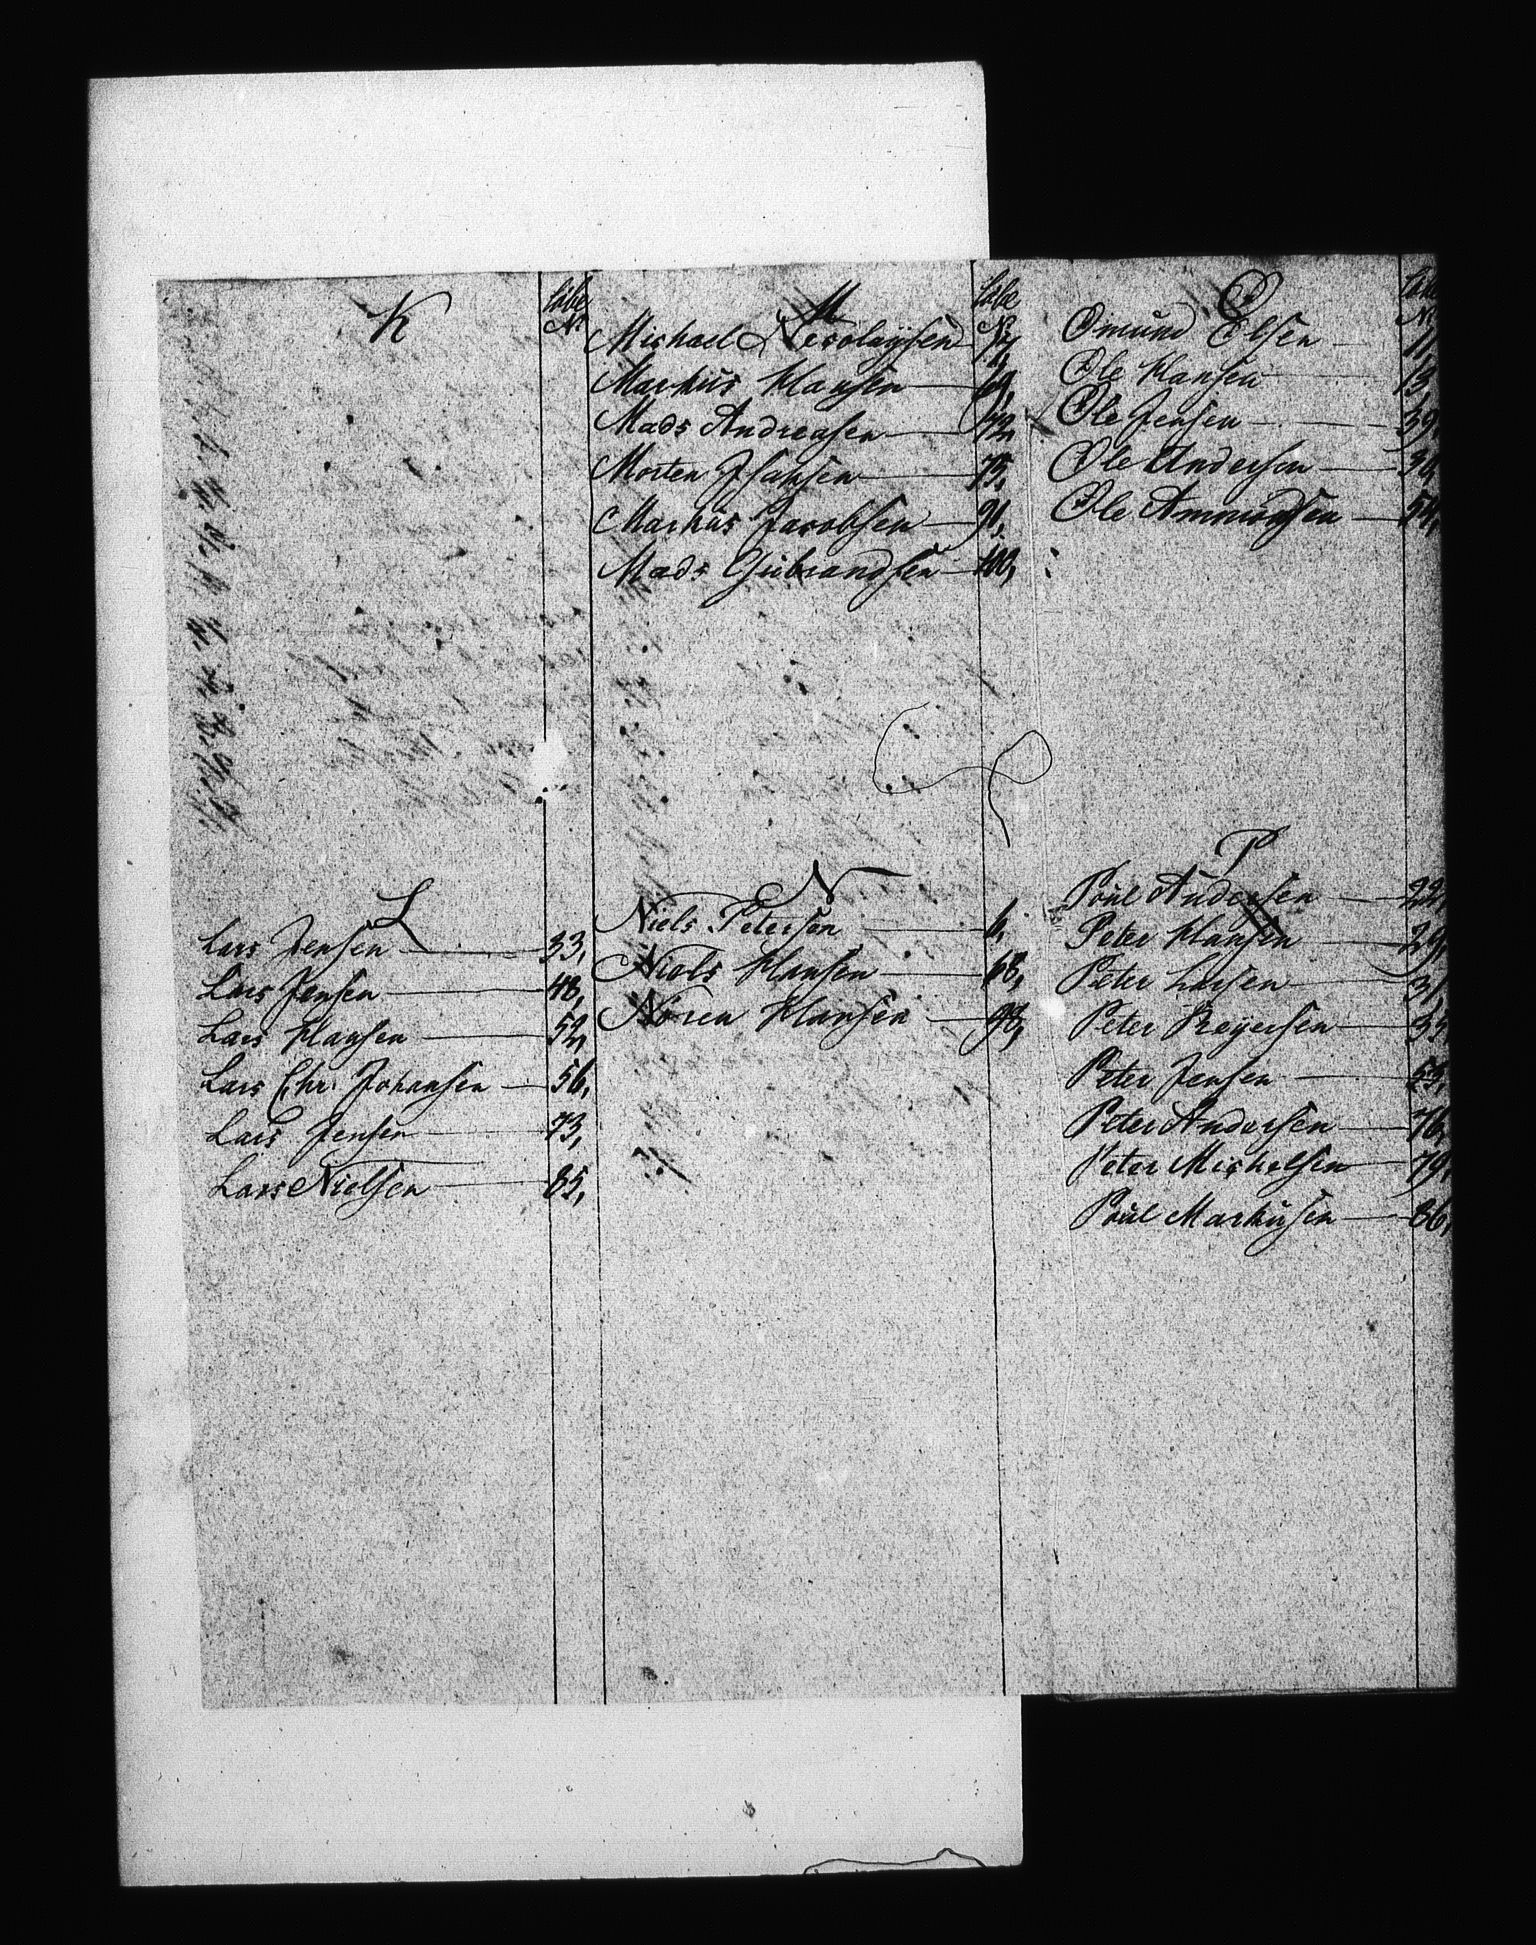 K
Løbe
No
L
Lars Jensen — 33,
Lars Jensen — 48,
Lars Hansen — 52,
Lars Chr. Johansen — 56,
Lars Jensen — 73,
Lars Nielsen — 85,
M
Løbe
No
Michael Nicolaysen
Markus Hansen — 69,
Mads Andreasen — 72
Morten Isaksen — 75,
Markus Jacobsen — 91,
Mads Gulbrandsen — 100,
N
Niels Petersen — 6,
Niels Hansen — 68,
Nören Hansen — 98,
O
Omund Elsen — 11,
Ole Hansen — 13
Ole Jensen — 39
Ole Andersen — 34
Ole Ammundsen — 54,
P
Poul Andersen — 22,
Peter Hansen — 29,
Peter Larsen — 31,
Peter Reyersen — 35
Peter Jensen — 53,
Peter Andersen — 76,
Peter Michelsen — 79,
Poul Markusen — 86,